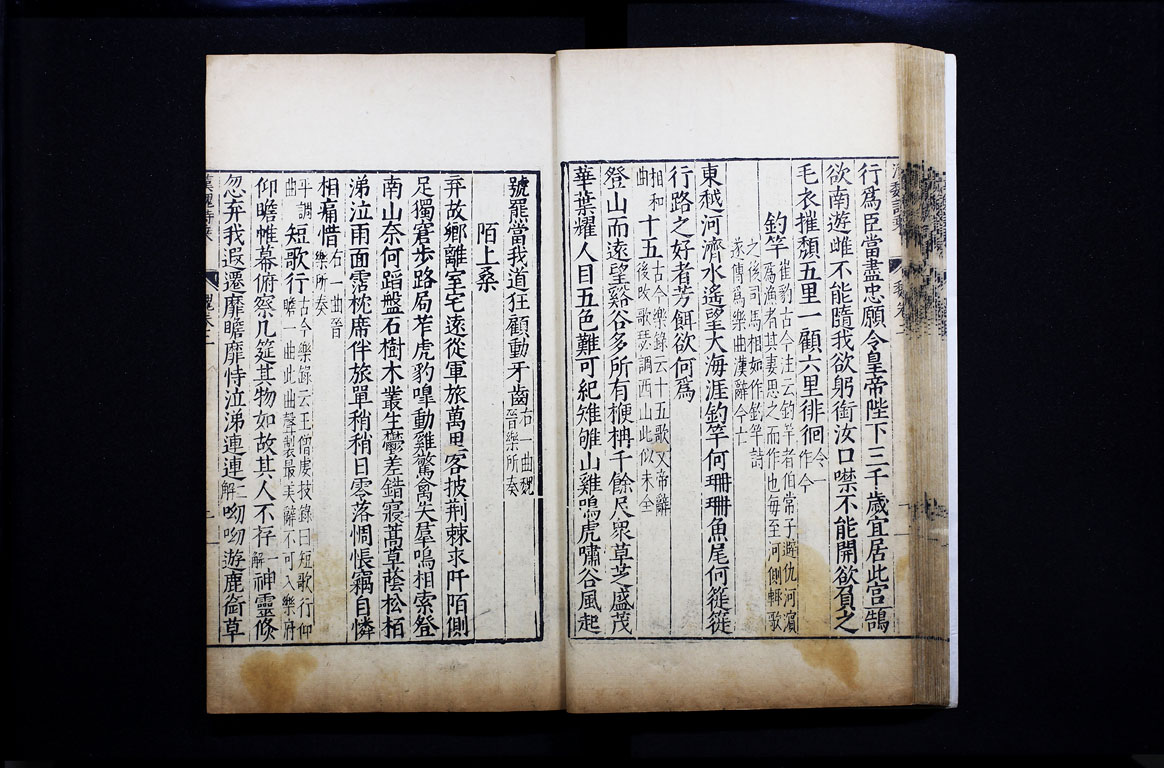 行爲臣當盡忠願令皇帝陛下三千歲宜居此宮鵠
欲南遊雌不能隨我欲躬銜汝口噤不能開欲負之
毛衣摧頹五里一顧六里徘徊
釣竿崔豹古今注云釣竿者伯常子避仇河濱
爲漁者其妻思之而作也每至河側輒歌
之後司馬相如作釣竿詩
遂傳爲樂曲漢辭今亡
東越河濟水遙望大海涯釣竿何珊珊魚尾何簁簁
行路之好者芳餌欲何爲
相和
曲
十五古今樂錄云十五歌文帝辭
後改歌瑟調西山此似未全
登山而遠望谿谷多所有楩枏千餘尺衆草芝盛茂
華葉耀人目五色難可紀雉雊山雞鳴虎嘯谷風起
號罷當我道狂顧動牙齒右一曲魏
晉樂所奏
陌上桑
弃故鄉離室宅遠從軍旅萬里客披荆棘求阡陌側
足獨窘步路局苲虎豹嘷動雞驚禽失羣鳴相索登
南山奈何蹈盤石樹木叢生鬱差錯寢蒿草蔭松柏
涕泣雨面霑枕席伴旅單稍稍日零落惆悵竊自憐
相痛惜右一曲晉
樂所奏
平調
曲
短歌行古今樂錄云王僧虔技錄曰短歌行仰
瞻一曲此曲聲製最美辭不可入樂府
仰瞻帷幕俯察几筵其物如故其人不存一解神靈倏
忽弃我遐遷靡瞻靡恃泣涕連連二解呦呦遊鹿銜草